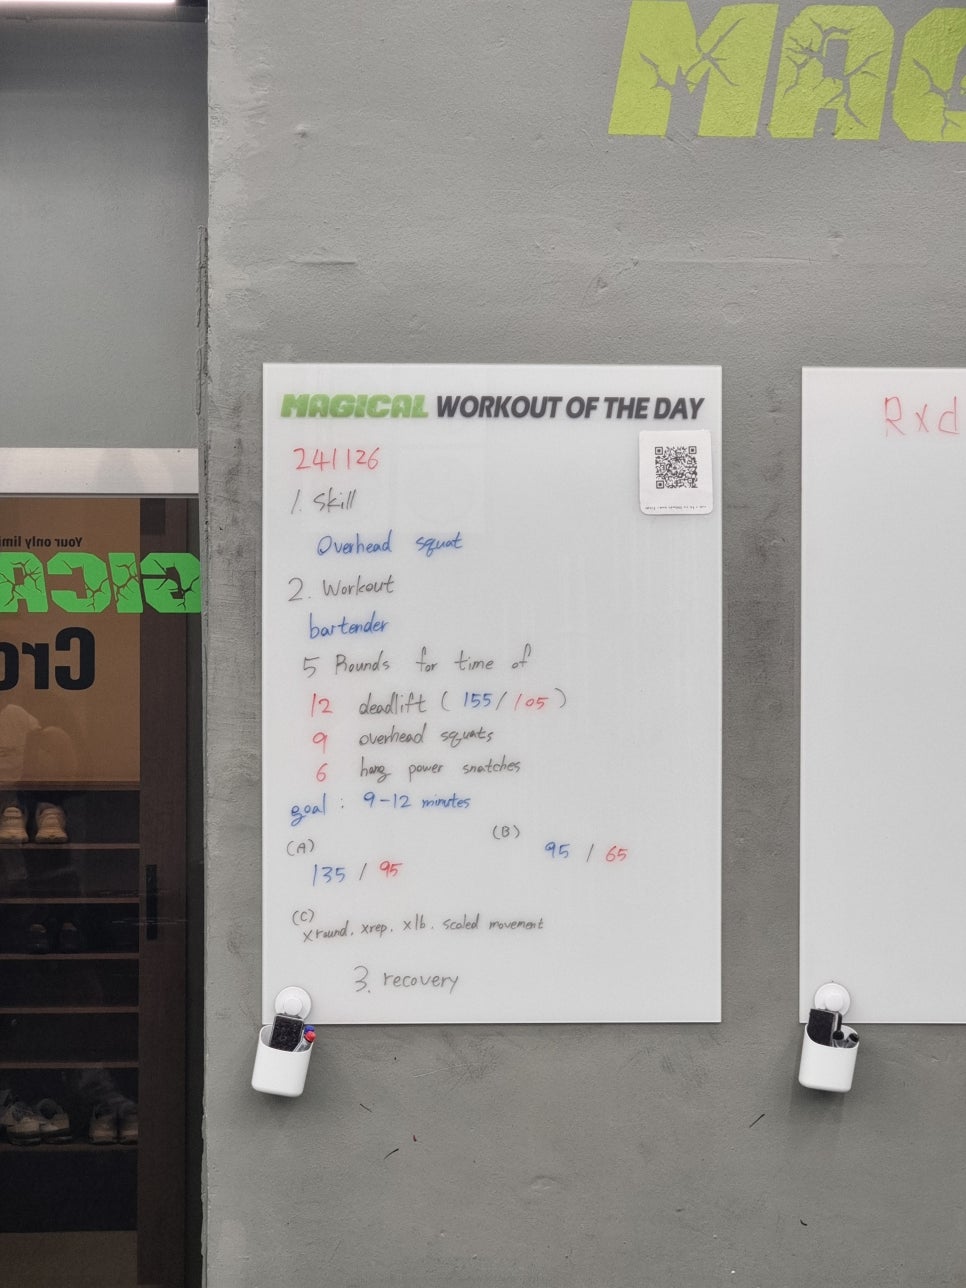 MAG
MAGICAL WORKOUT OF THE DAY
241126
1. Skill
Overhead squat
2. Workout
bartender
5 Rounds for time of
12 deadlift (155/105)
9 overhead squats
6 hang power snatches
goal : 9-12 minutes
(A)
135 / 95
(B)
95 / 65
(C)
x round, xrep, xlb, scaled movement
3. recovery
Rxd
Your only limi
GICA
Cro